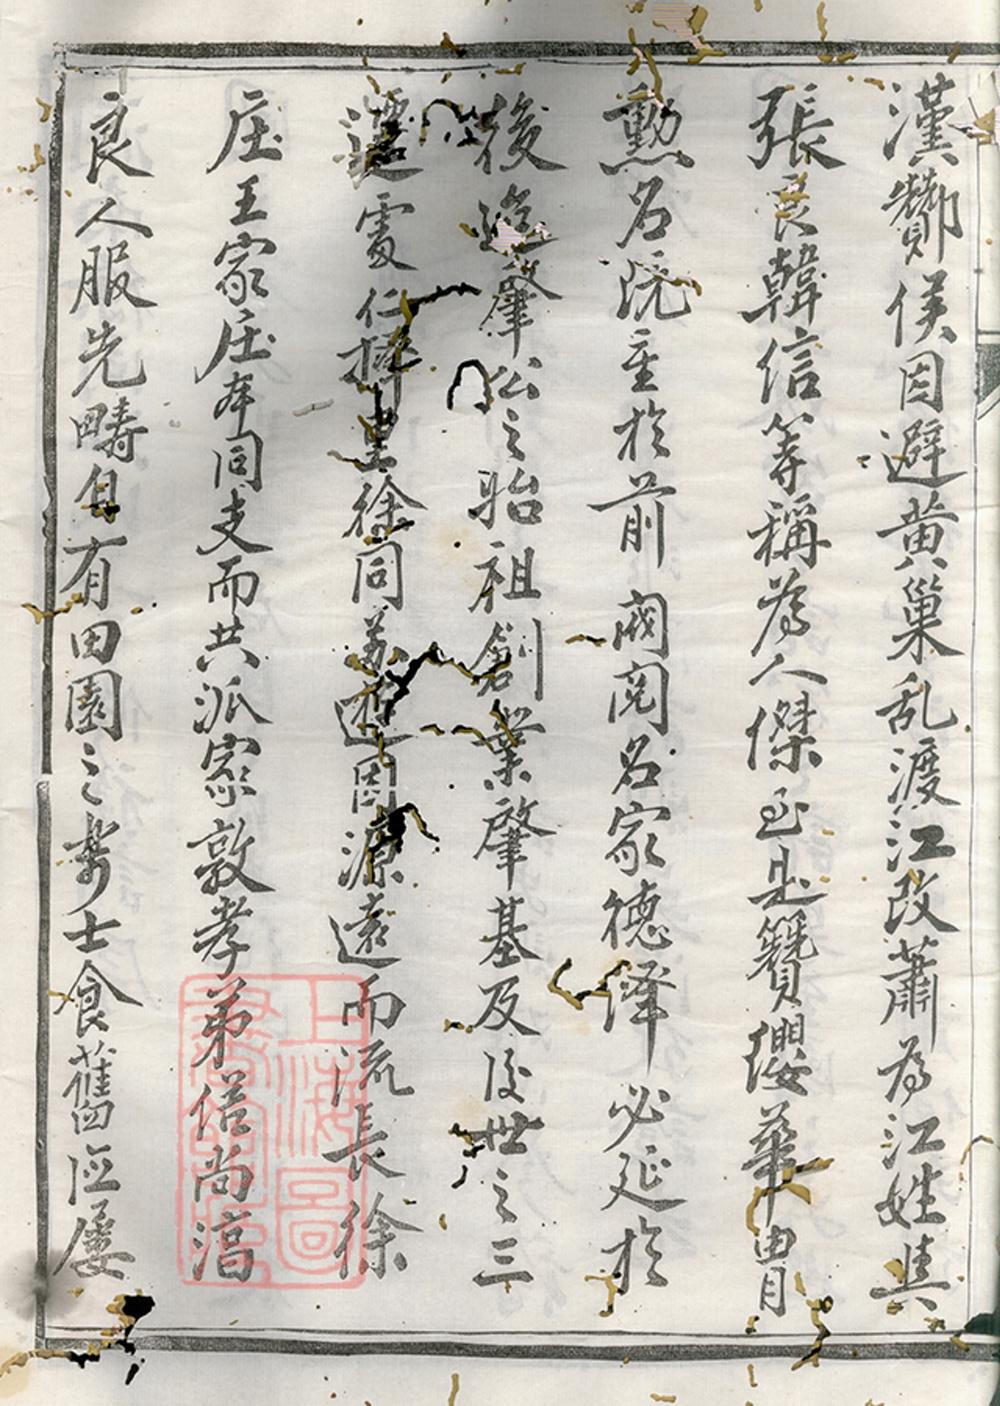 漢酇侯因避黃巢乱渡江改蕭為江姓與
張良韓信等稱為人傑至是簪纓華冑
勲名既重於前閥閱名家德澤必延於
後迨肇公之貽祖創業肇基及後世之三
遷處仁擇里徐同募遊固源遠而流長徐
庄王家庄本同支而共派家敦孝弟俗尚淳
良人服先疇自有田園之樂士食舊德屢
上海圖書館藏